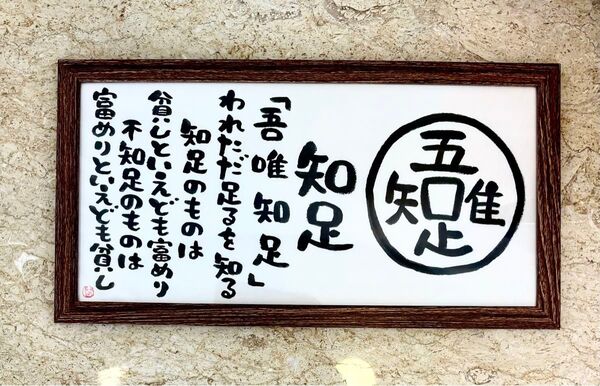 吾唯足知
知足
「吾唯知足」
われただ足るを知る
知足のものは
貧しといえども富めり
不知足のものは
富めりといえども貧し